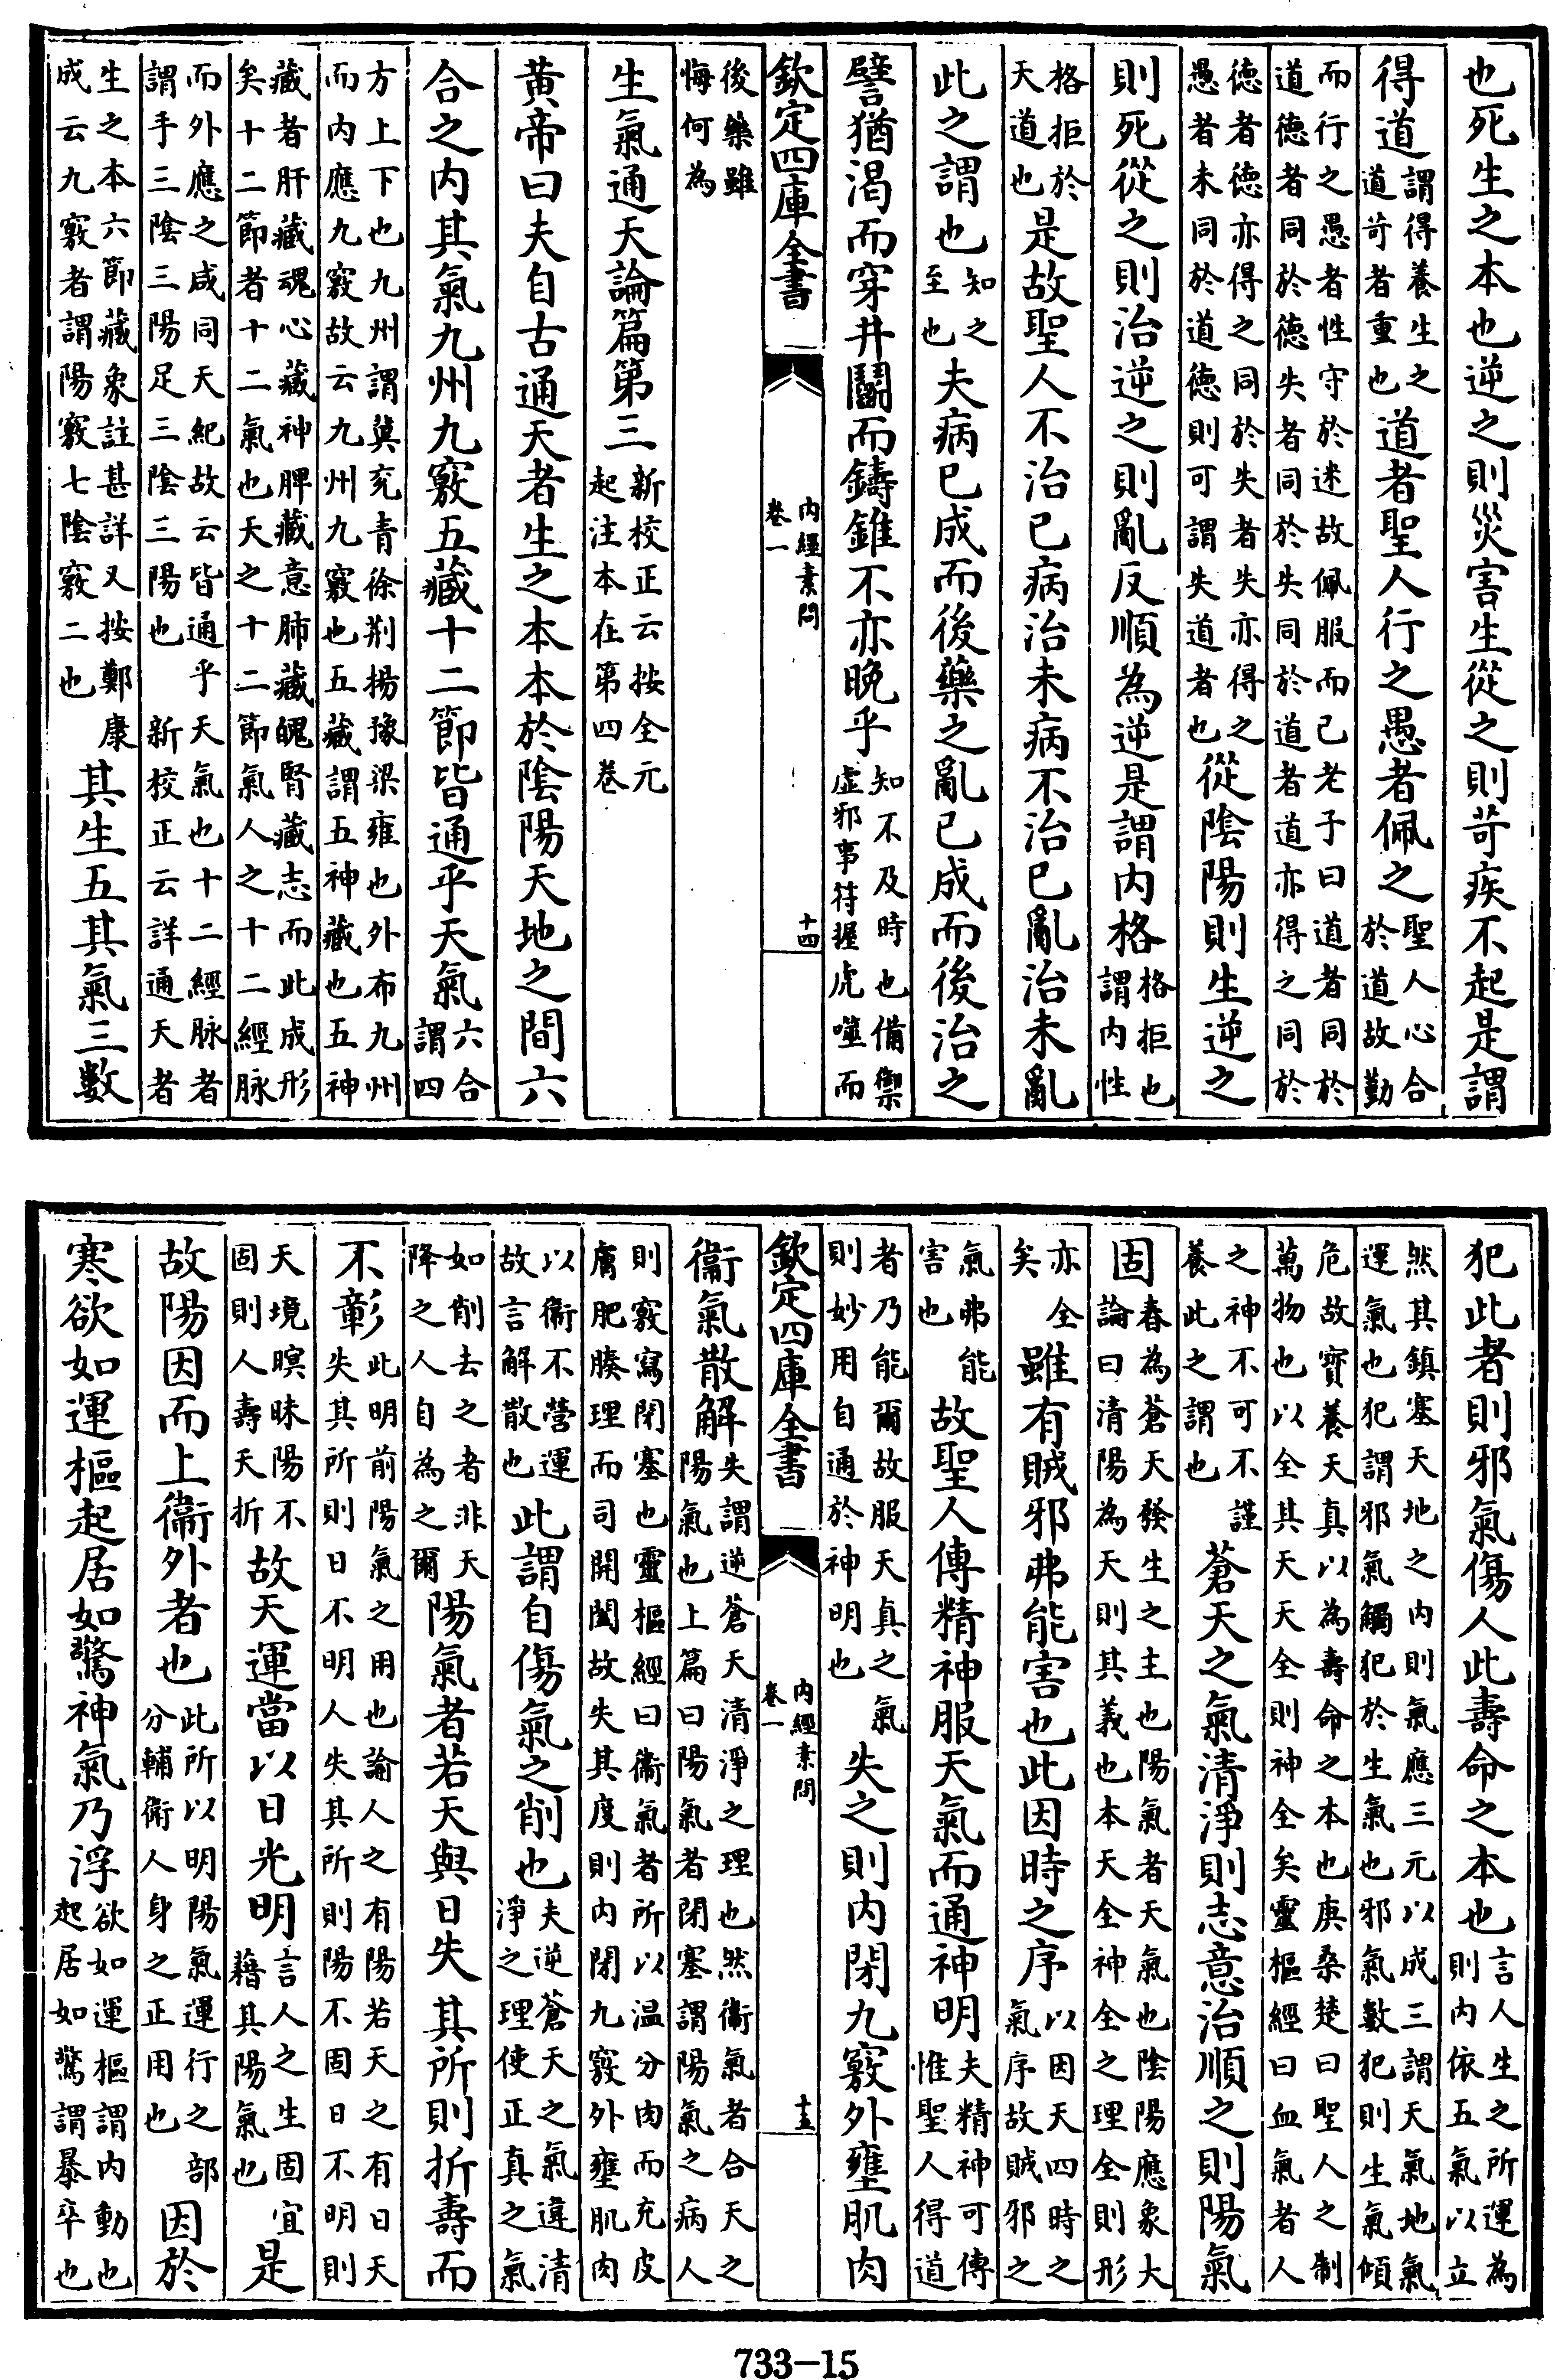 也死生之本也逆之則災害生從之則苛疾不起是謂
得道謂得養生之道苛者重也道者聖人行之愚者佩之聖人心合於道故勤
而行之愚者性守於迷故佩服而已老子曰道者同於道德者同於德失者同於失同於道者道亦得之同於
德者德亦得之同於失者失亦得之愚者未同於道德則可謂失道者也從陰陽則生逆之
則死從之則治逆之則亂反順為逆是謂内格格拒也謂内性
格拒於天道也是故聖人不治已病治未病不治已亂治未亂
此之謂也知之至也夫病已成而後藥之亂已成而後治之
譬猶渴而穿井鬭而鑄錐不亦晚乎知不及時也備禦虛邪事待握虎噬而
欽定四庫全書
内經素問
卷一
十四
後藥雖悔何為
生氣通天論篇第三新校正云按全元起注本在第四卷
黄帝曰夫自古通天者生之本本於陰陽天地之間六
合之内其氣九州九竅五藏十二節皆通乎天氣六合謂四
方上下也九州謂冀兖青徐荆揚豫梁雍也外布九州而内應九竅故云九州九竅也五藏謂五神藏也五神
藏者肝藏魂心藏神脾藏意肺藏魄腎藏志而此成形矣十二節者十二氣也天之十二節氣人之十二經脉
而外應之咸同天紀故云皆通乎天氣也十二經脉者謂手三陰三陽足三陰三陽也新校正云詳通天者
生之本六節藏象註甚詳又按鄭康成云九竅者謂陽竅七陰竅二也其生五其氣三數
犯此者則邪氣傷人此壽命之本也言人生之所運為則内依五氣以立
然其鎮塞天地之内則氣應三元以成三謂天氣地氣運氣也犯謂邪氣觸犯於生氣也邪氣數犯則生氣傾
危故寶養天真以為壽命之本也庚桑楚曰聖人之制萬物也以全其天天全則神全矣靈樞經曰血氣者人
之神不可不謹養此之謂也蒼天之氣清淨則志意治順之則陽氣
固春為蒼天發生之主也陽氣者天氣也陰陽應象大論曰清陽為天則其義也本天全神全之理全則形
亦全矣雖有賊邪弗能害也此因時之序以因天四時之氣序故賊邪之
氣弗能害也故聖人傳精神服天氣而通神明夫精神可傳惟聖人得道
者乃能爾故服天真之氣則妙用自通於神明也失之則内閉九竅外壅肌肉
欽定四庫全書
内經素問
卷一
十五
衞氣散解失謂逆蒼天清淨之理也然衞氣者合天之陽氣也上篇曰陽氣者閉塞謂陽氣之病人
則竅寫閉塞也靈樞經曰衞氣者所以温分肉而充皮膚肥腠理而司開闔故失其度則内閉九竅外壅肌肉
以衞不營運故言解散也此謂自傷氣之削也夫逆蒼天之氣違清淨之理使正真之氣
如削去之者非天降之人自為之爾陽氣者若天與日失其所則折壽而
不彰此明前陽氣之用也論人之有陽若天之有日天失其所則日不明人失其所則陽不固日不明則
天境暝昧陽不固則人壽夭折故天運當以日光明言人之生固宜藉其陽氣也是
故陽因而上衞外者也此所以明陽氣運行之部分輔衞人身之正用也因於
寒欲如運樞起居如驚神氣乃浮欲如運樞謂内動也起居如驚謂暴卒也
733-15